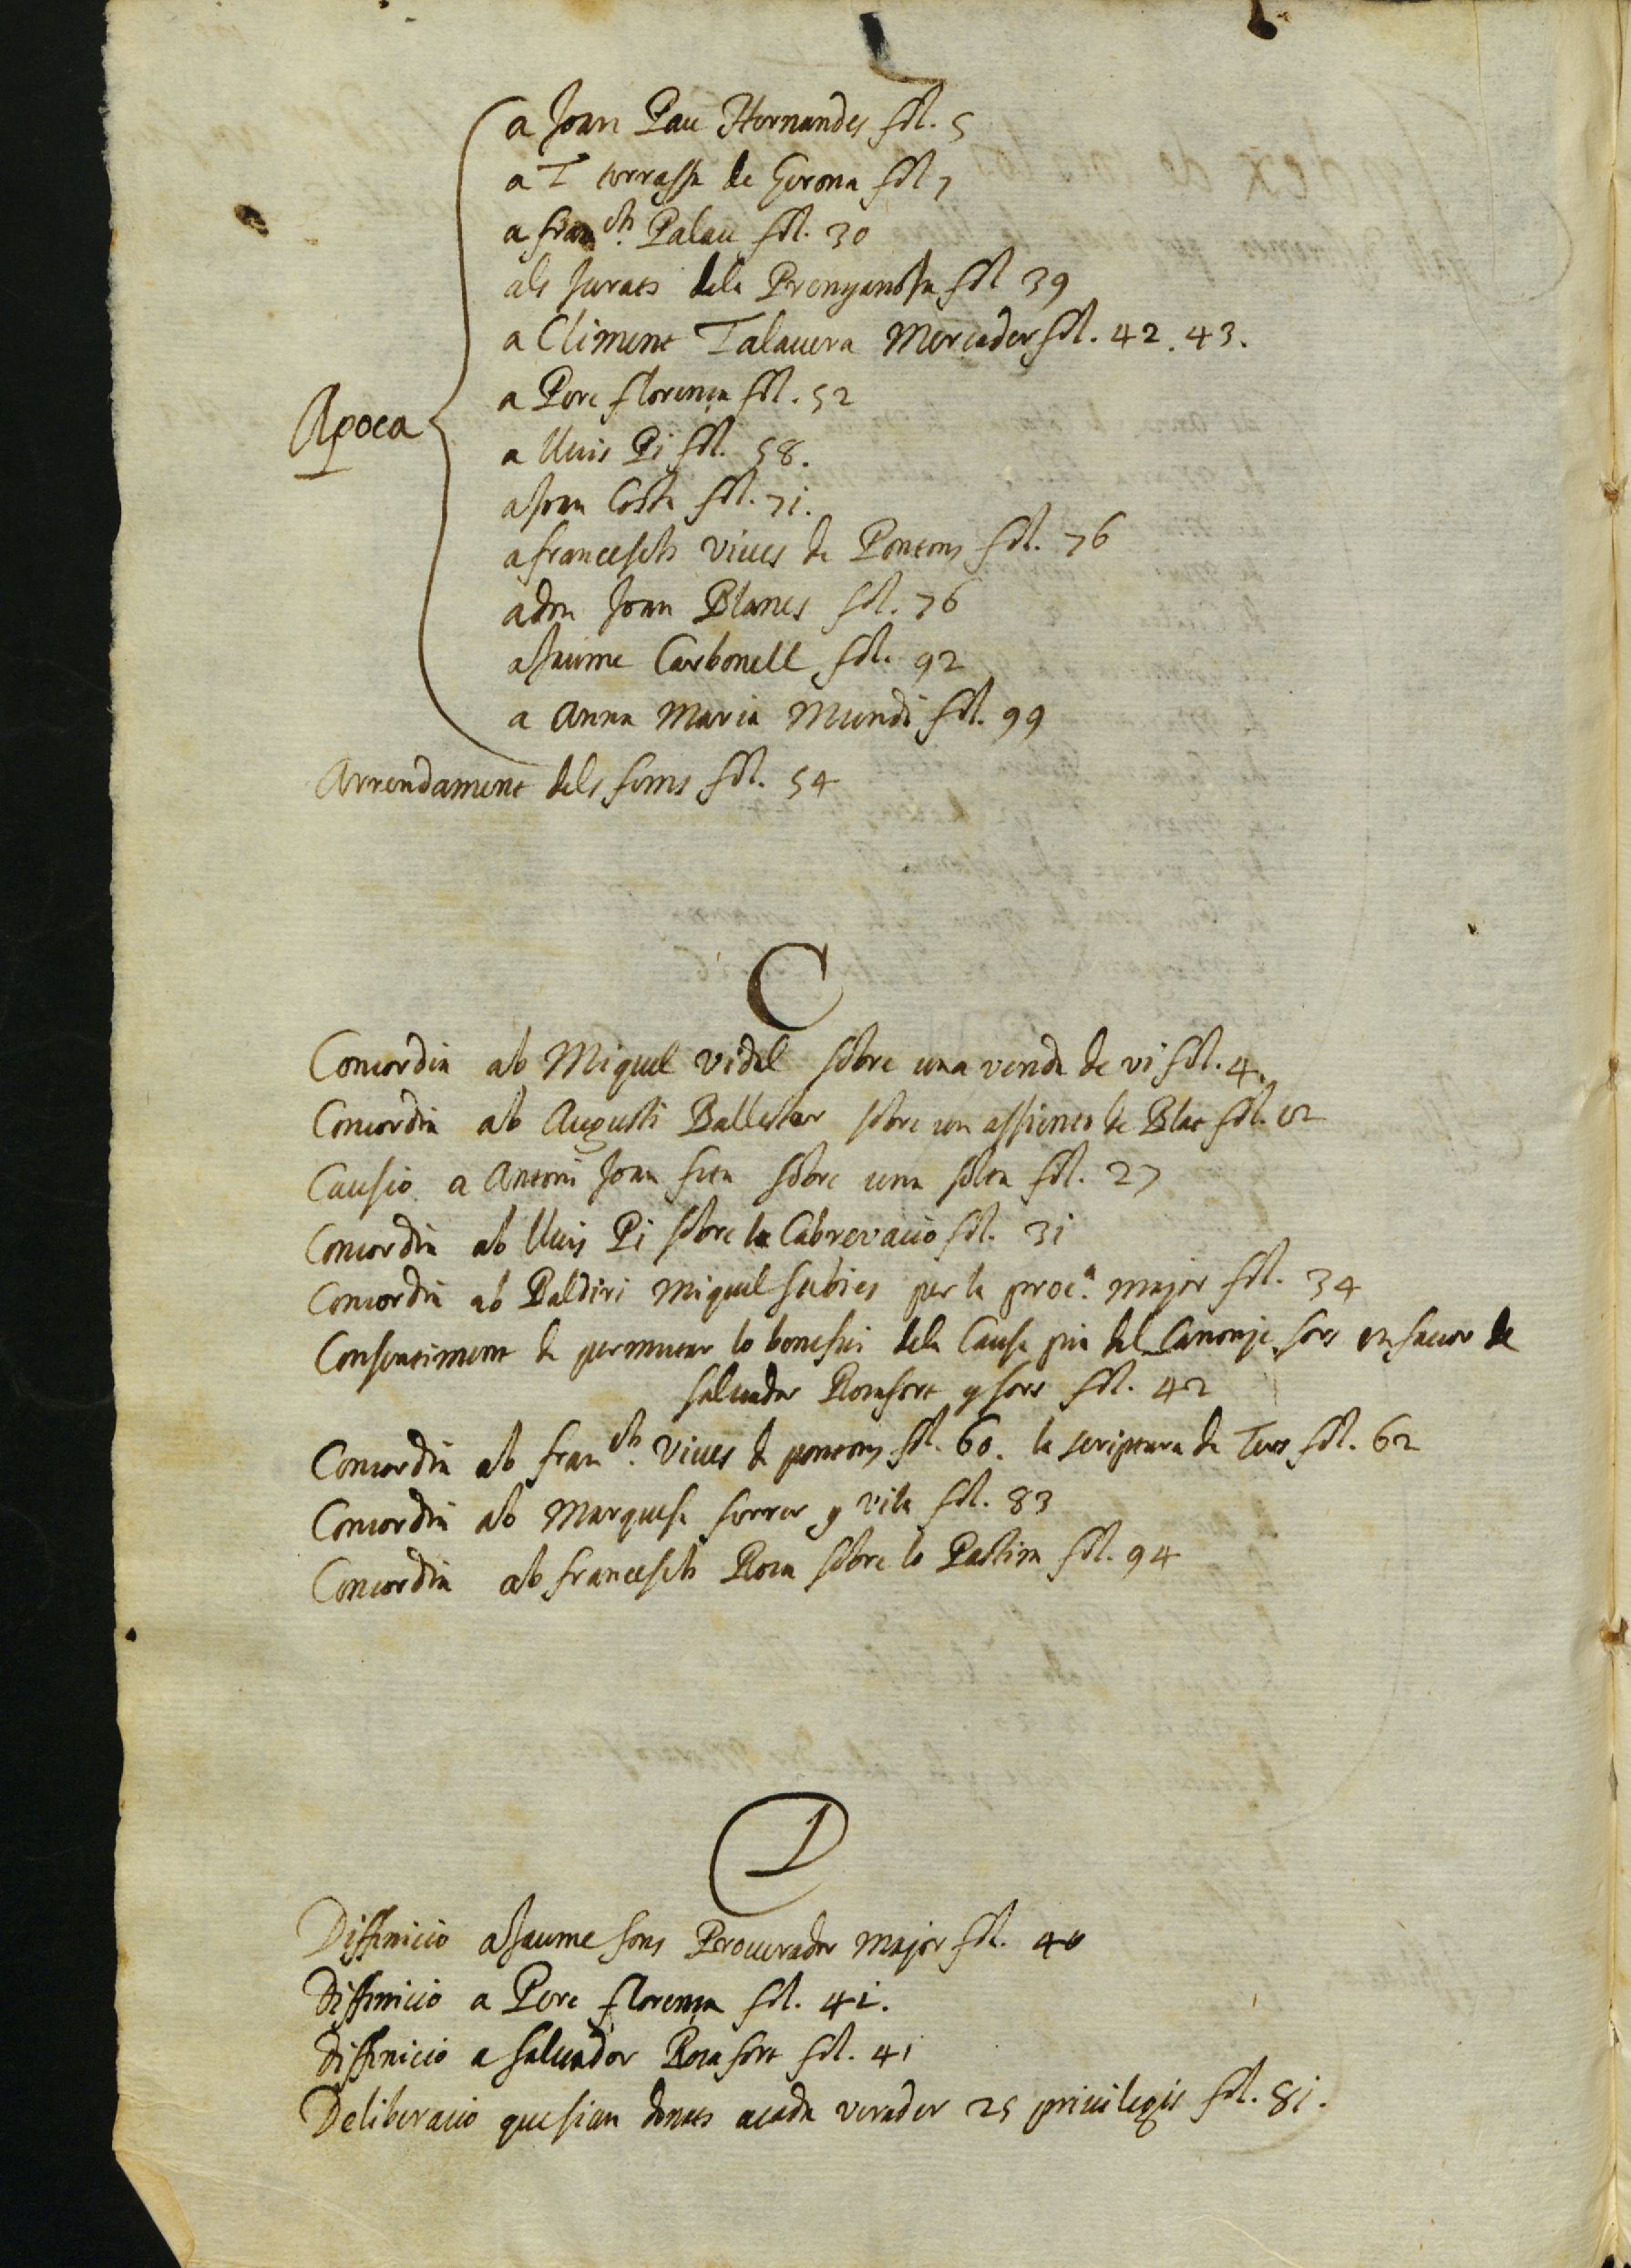 a Joan Pau Hernandes fol. 5
a T torrassa de Gerona fol 7
a fran.ch Palau fol. 30
als Jurats dela Prenyanosa fol 39
a Climent Talauera Mercader fol. 42. 43.
Apoca
a Pere florença fol. 52
a lluis Pi fol. 58.
a Joan Costa fol. 71.
a francesch viues de Pontons fol. 76
a don Joan Blanes fol. 76
a Jaume Carbonell fol. 92
a Anna Maria Mundi fol. 99
Arrendament dels forns fol. 54
C
Concordia ab Miquel vidal sobre una venda de vi fol. 4.
Concordia ab Augusti Ballester sobre un assiento de Blat fol. 12
Causio a Antoni Joan fita sobre una solta fol. 27
Concordia ab lluis Pi sobre la Cabrevacio fol. 31
Concordia ab Baldiri Miquel subies per la proc.a major fol. 34
Consentiment de permutar lo benefici dela Causa pia del Canonje sors en fauor de
saluador Rocafort y sors fol. 42
Concordia ab fran.ch viues de pontons fol. 60. la scriptura de Ters fol. 62
Concordia ab Marquesa ferrer y vila fol. 83
Concordia ab francesch Roca sobre lo Pastim fol. 94
D
Diffinicio a Jaume sons Procurador Major fol. 40
Diffinicio a Pere florença fol. 41.
Diffinicio a saluador Rocafort fol. 41
Deliberacio que sian donats a cada verader 25 priuilegis fol. 81.